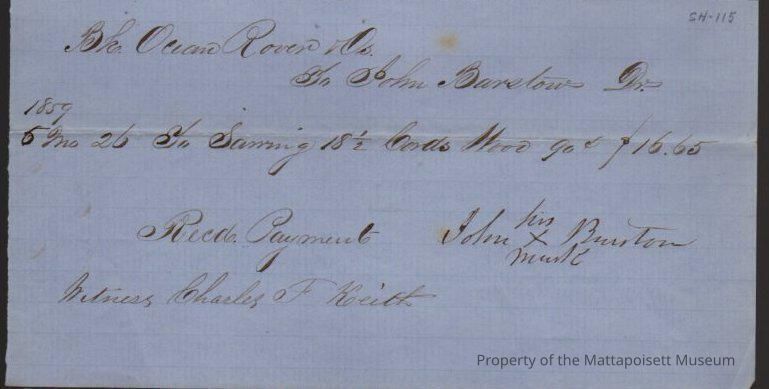 SH-115
Bk. Ocean Rover & Os.
To John Barstow Dr.
1859
5 Mo 26 To Sawing 18 1/2 Cords Wood 90¢ $16.65
Recd. Payment John his X mark Burston
Witness Charles F Keith
Property of the Mattapoisett Museum